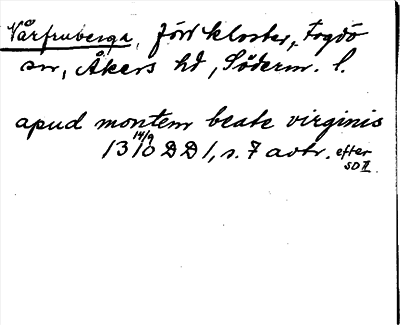 Vårfruberga, förr kloster, Fogdö
sn, Åkers hd, Söderm. l.
apud montem beate virginis
14/9
1310 DD 1, s. 7 avtr. efter
SD II.